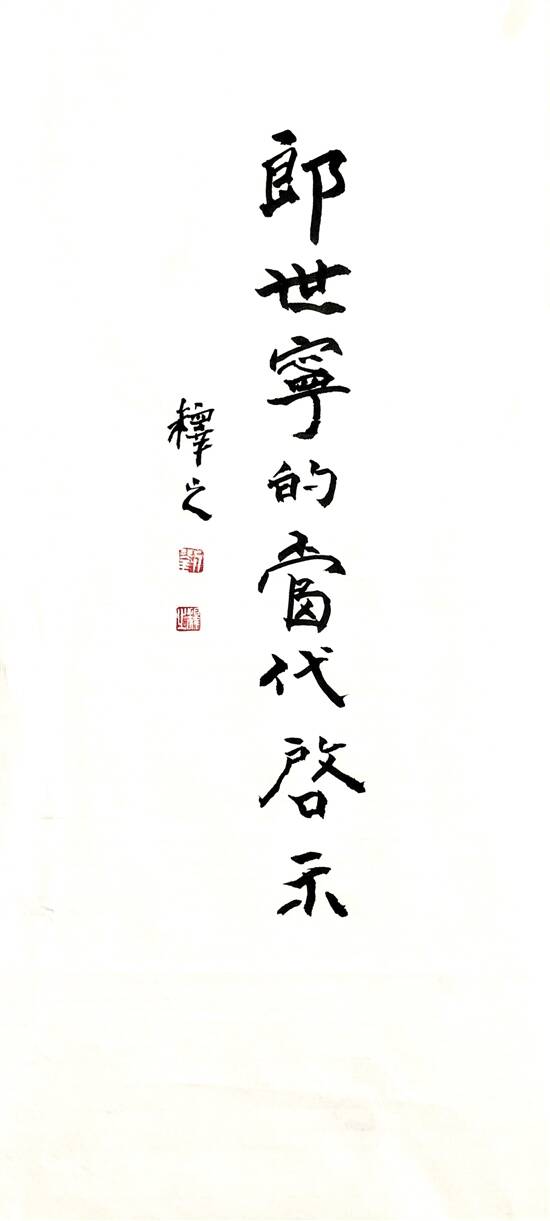 郎世寧的當代啓示
釋之